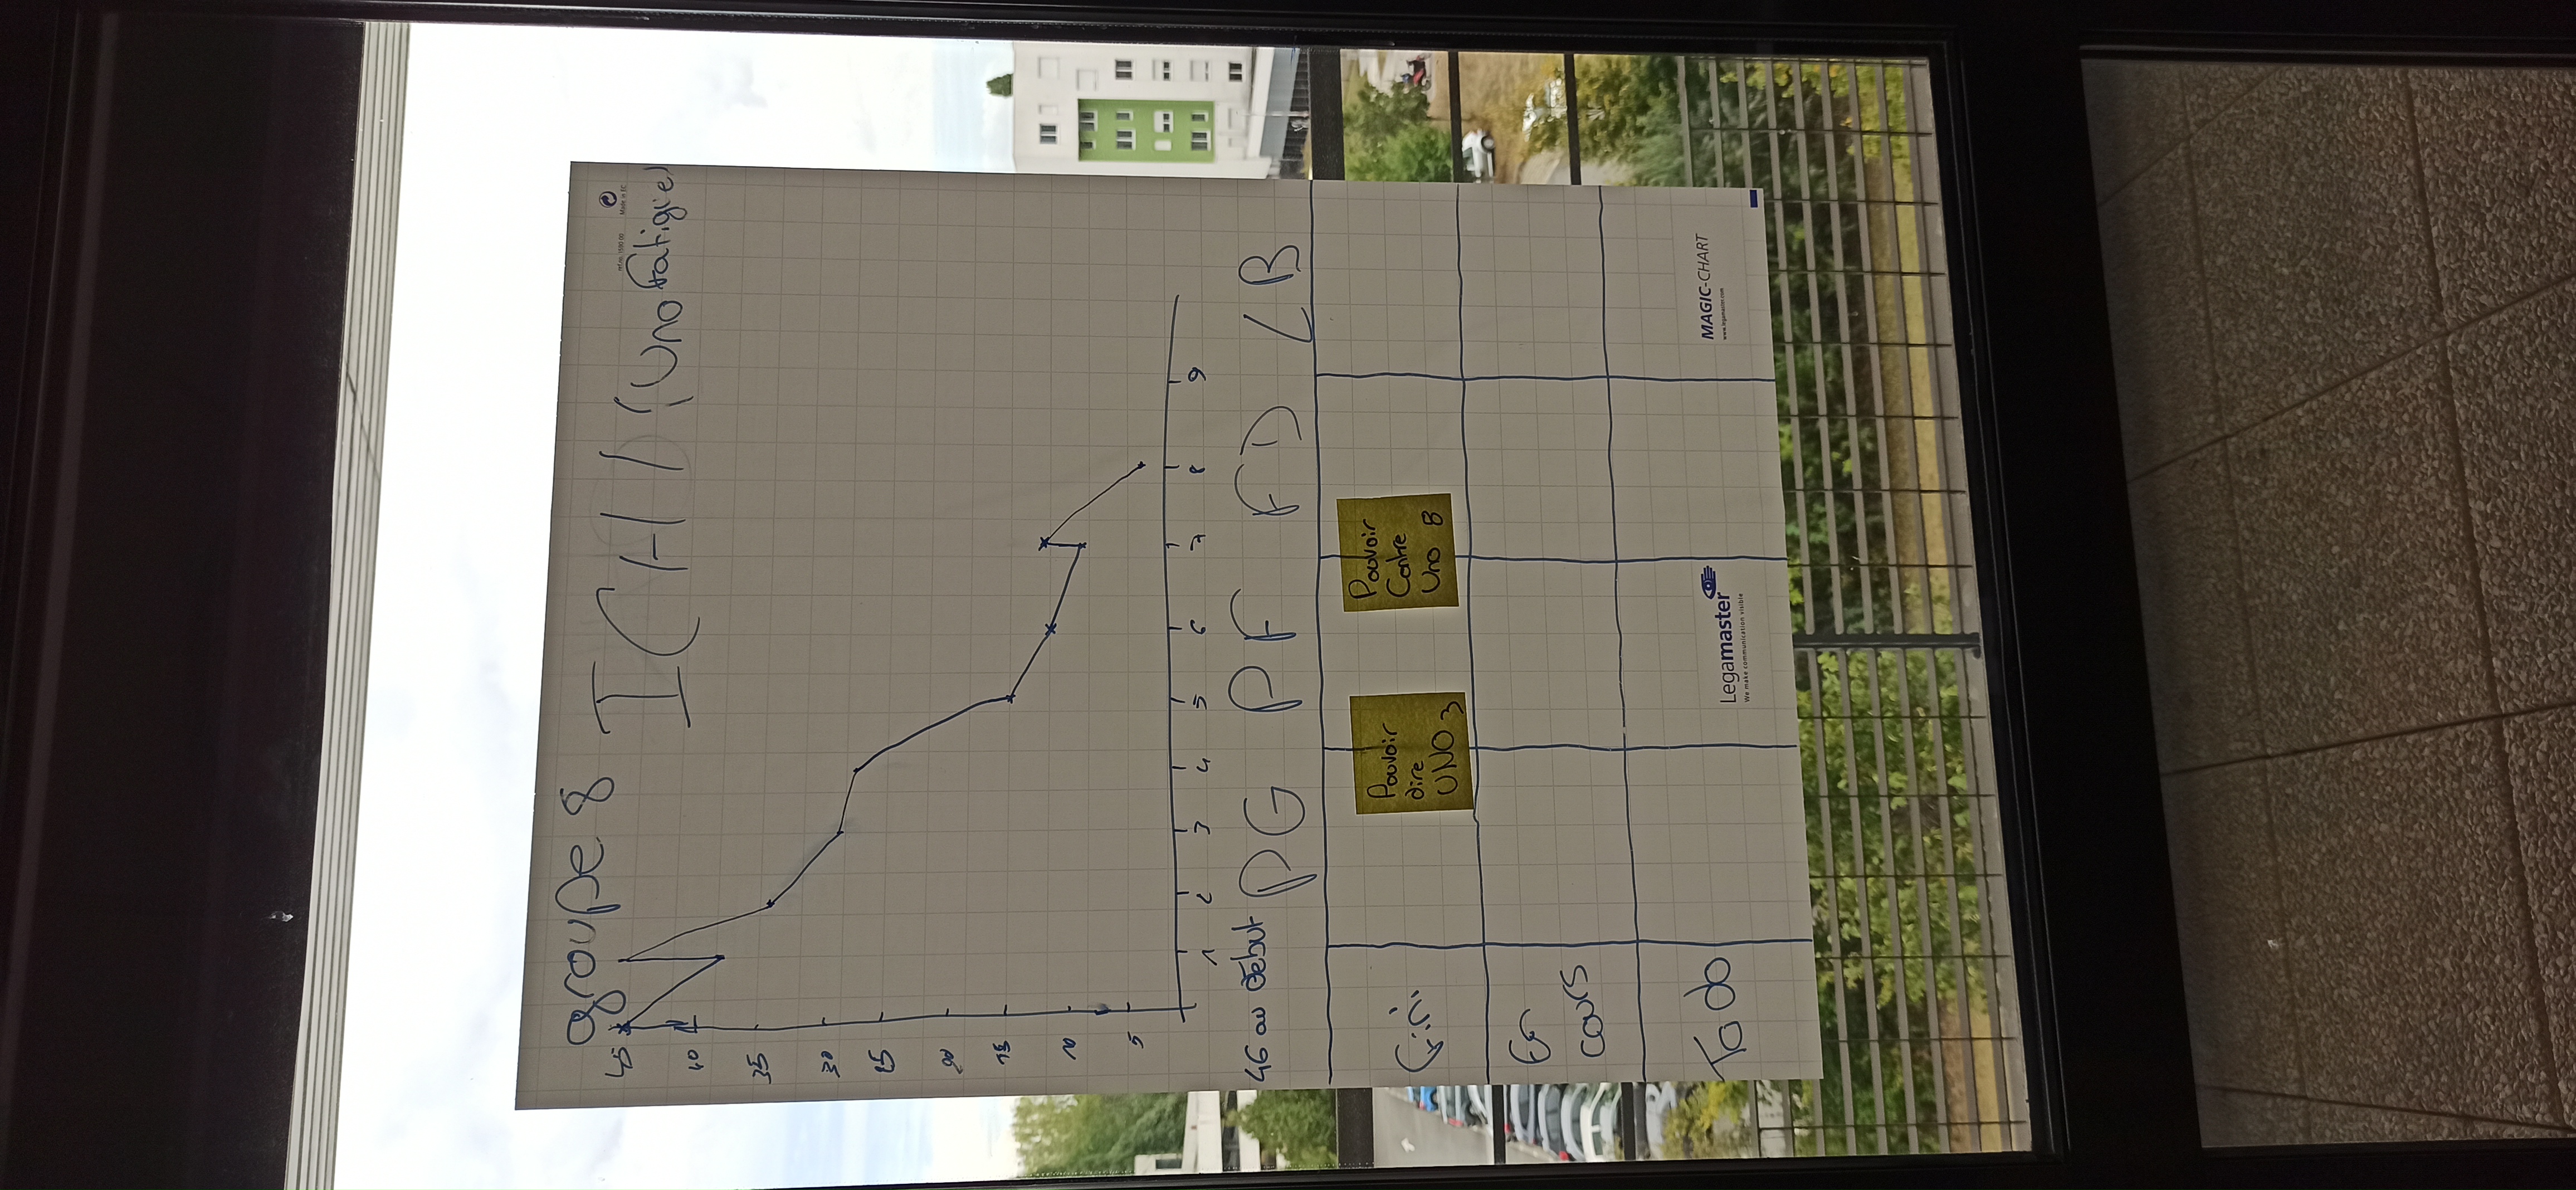 groupe 8
ICHI (Uno Fatigue)
ref.no. 1590 00
Made in EC
45
40
35
30
25
20
15
10
5
1 2 3 4 5 6 7 8 9
46 au début
PG PF FD LB
Fini
Pouvoir
dire
UNO 3
Pouvoir
Contre
Uno 8
En
cours
To do
Legamaster
We make communication visible
MAGIC-CHART
www.legamaster.com